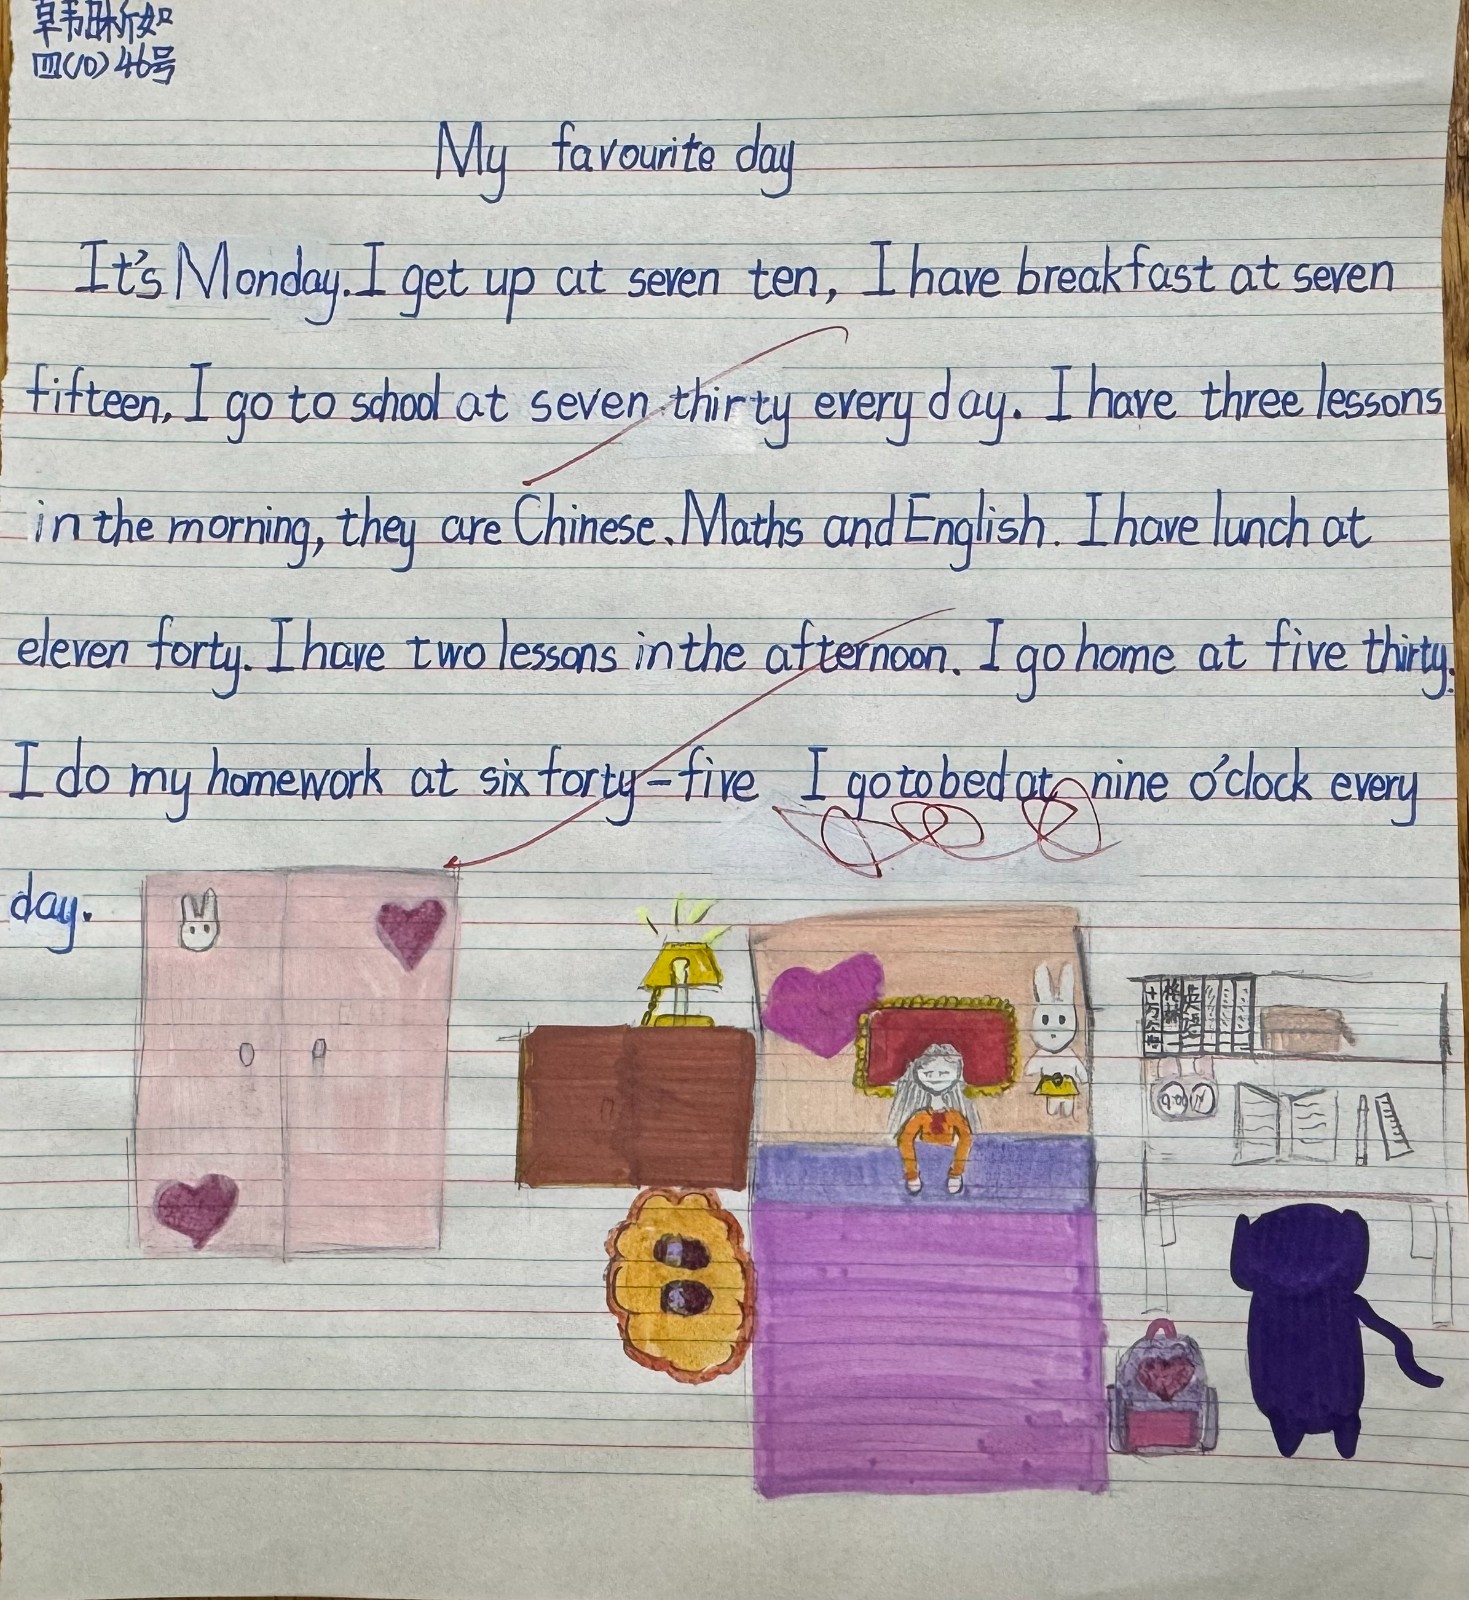 韩晰如
四(10)46号
My favourite day
It's Monday. I get up at seven ten, I have breakfast at seven
fifteen, I go to school at seven thirty every day. I have three lessons
in the morning, they are Chinese、Maths and English. I have lunch at
eleven forty. I have two lessons in the afternoon. I go home at five thirty.
I do my homework at six forty-five I go to bed at nine o'clock every
day.
英语
9:00